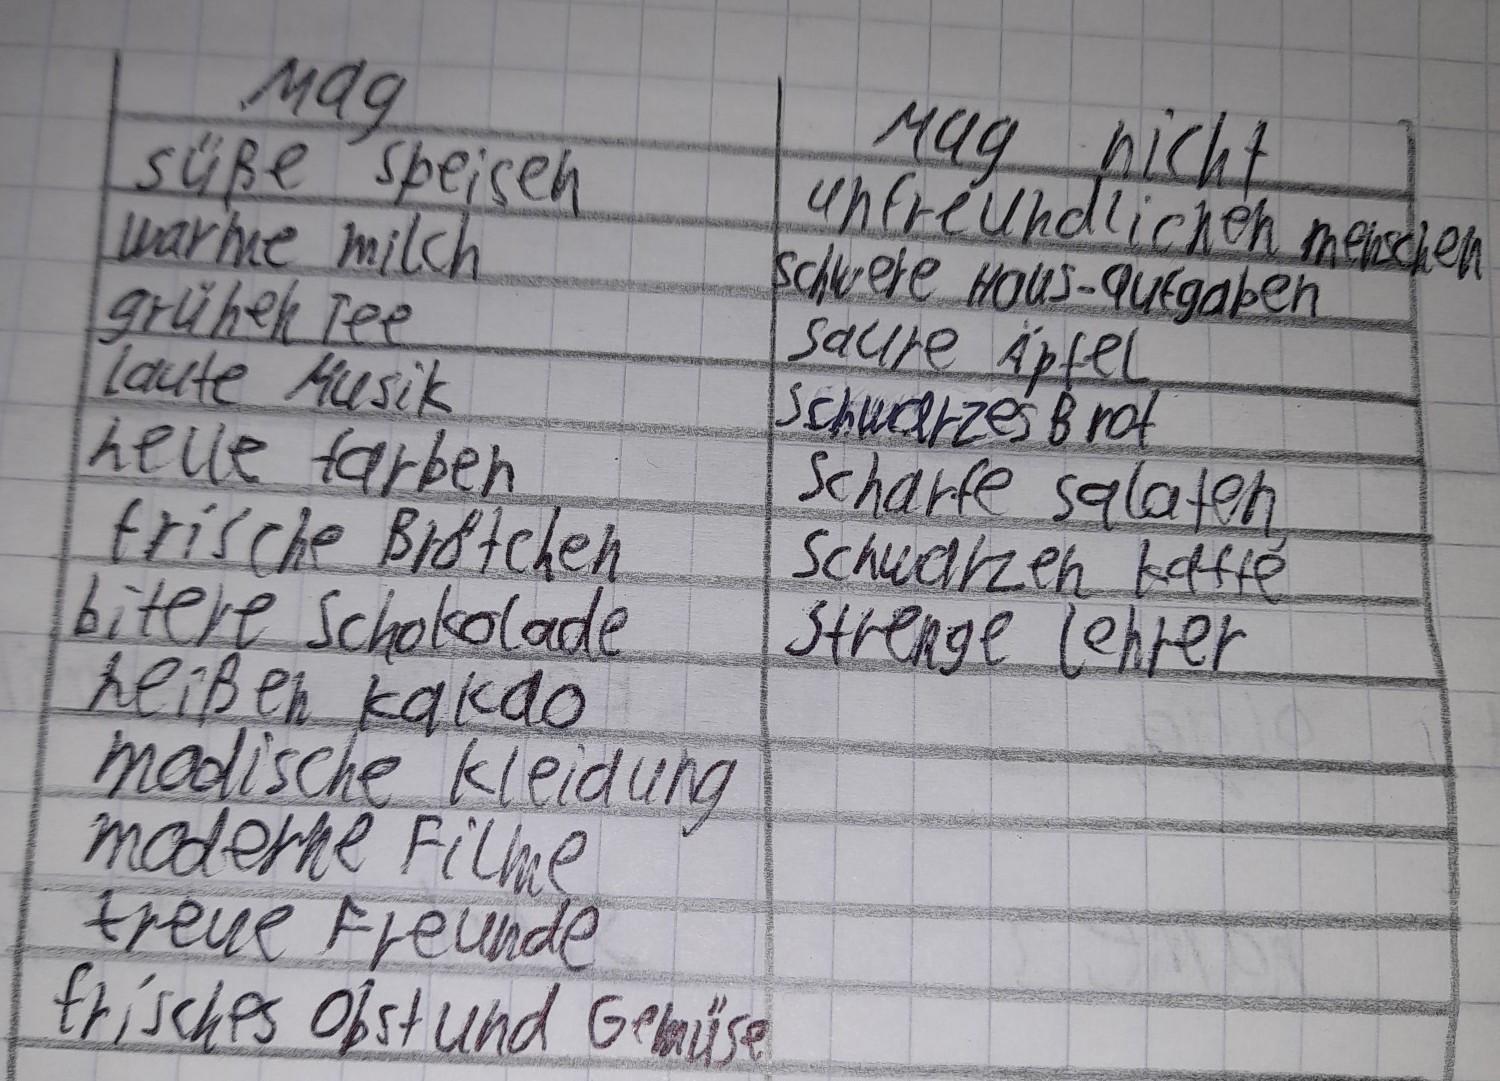 Mag
süße speisen
warme milch
grünen Tee
laute Musik
helle farben
frische Brötchen
bitere Schokolade
heißen kakao
modische kleidung
moderne Filme
treue Freunde
frisches Obst und Gemüse
Mag nicht
unfreundlichen menschen
schwere Haus-aufgaben
saure Äpfel
schwarzes Brot
scharfe salaten
schwarzen kaffe
strenge lehrer